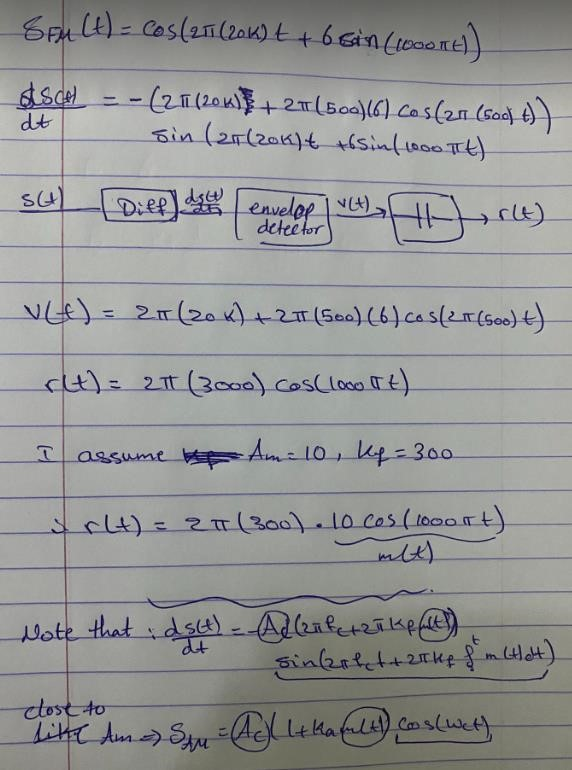 S_FM (t) = cos(2π(20K) t + 6 sin (1000πt))
ds(t)/dt = -(2π(20K) + 2π(500)(6) cos(2π(500) t))
sin (2π(20K)t +6sin(1000πt)
s(t) Diff ds(t)/dt envelop detector v(t) r(t)
V(t) = 2π(20K) + 2π(500)(6) cos(2π(500)t)
r(t) = 2π(3000) cos(1000πt)
I assume Am = 10, Kf = 300
∴ r(t) = 2π(300) . 10 cos(1000πt)
m(t)
Note that : ds(t)/dt = -Ac(2πfc+2πKf m(t))
sin(2πfct+2πKf ∫^t m(t)dt)
close to
like Am => S_AM = Ac(1+Ka m(t)) cos(wct)